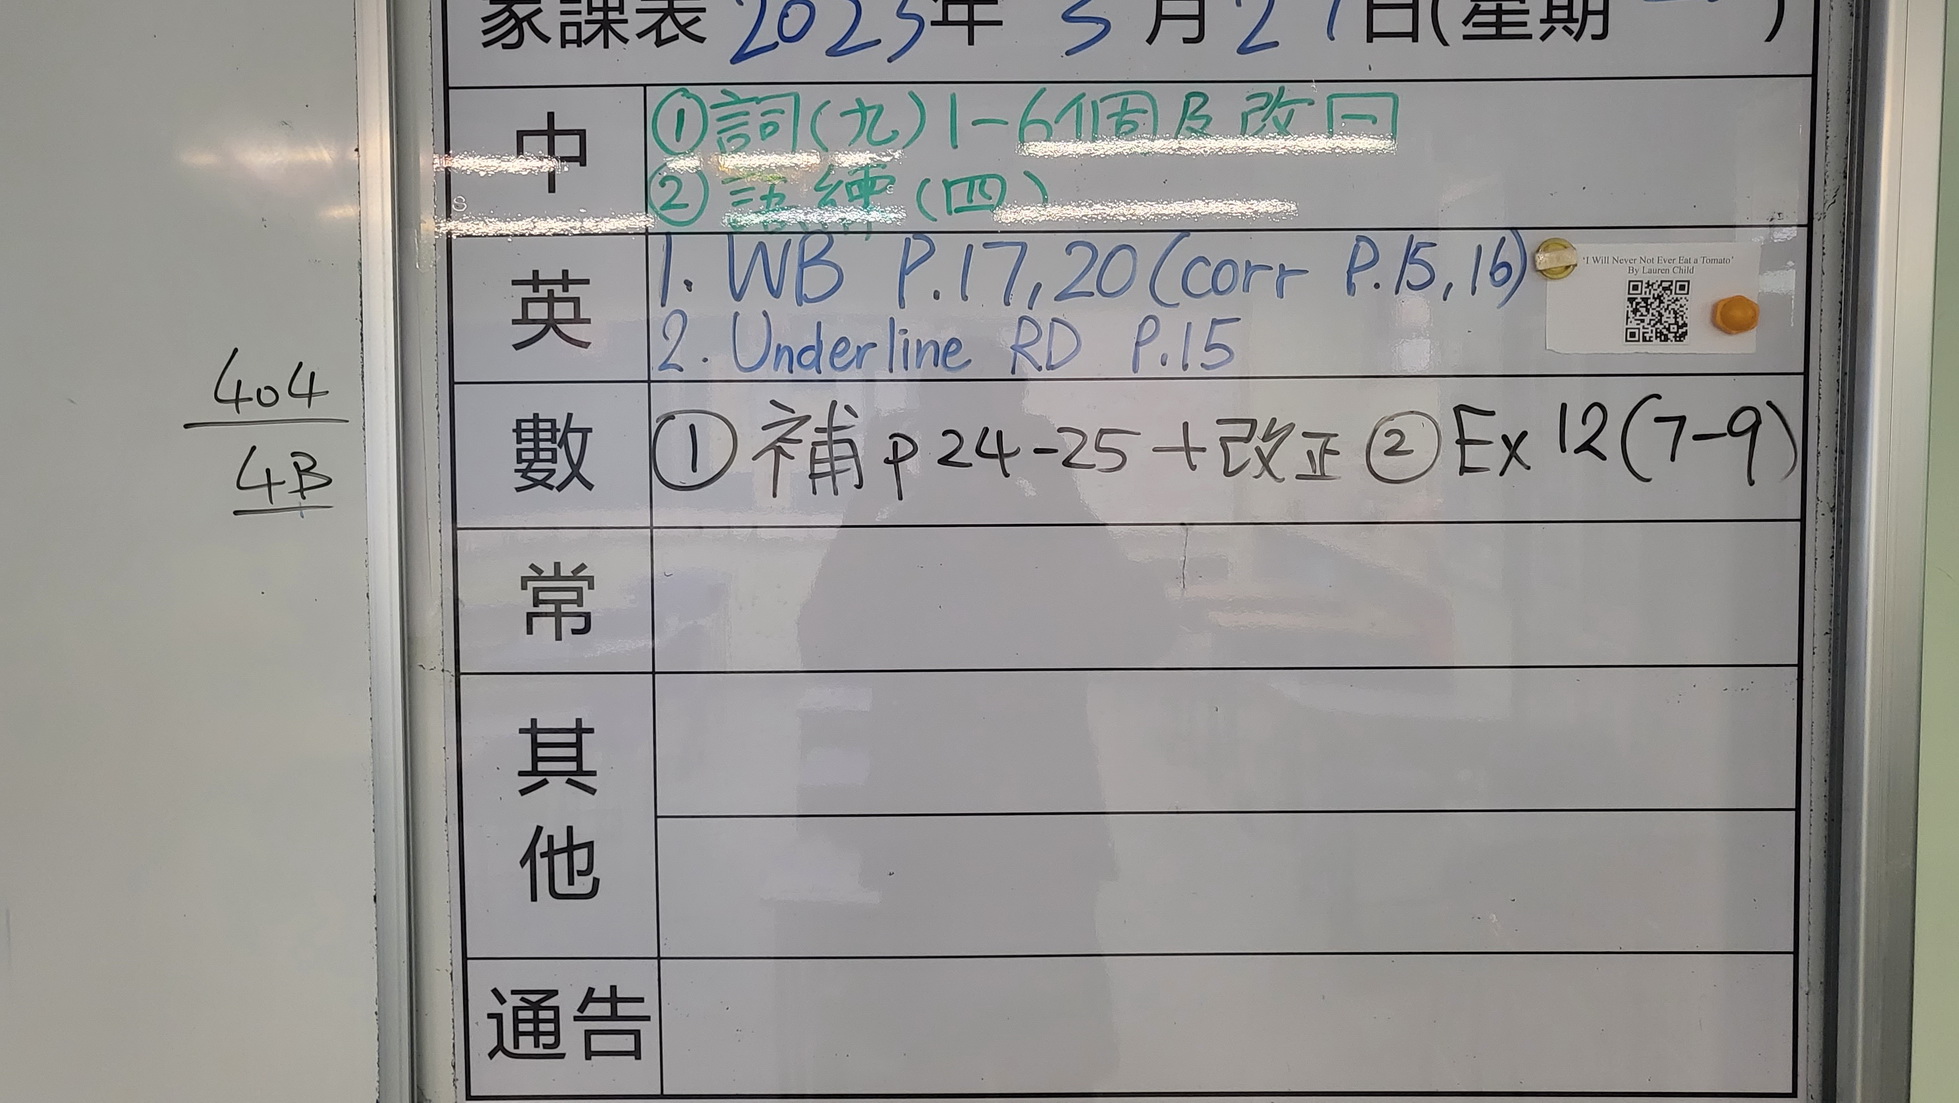 家課表 2023年 3月27日(星期一)
中
①詞(九)1-6個及改回
②語練(四)
英
1. WB P.17,20(corr P.15,16)
2. Underline RD P.15
'I Will Never Not Ever Eat a Tomato'
By Lauren Child
數
①補p24-25+改正②Ex 12(7-9)
404
4B
常
其他
通告